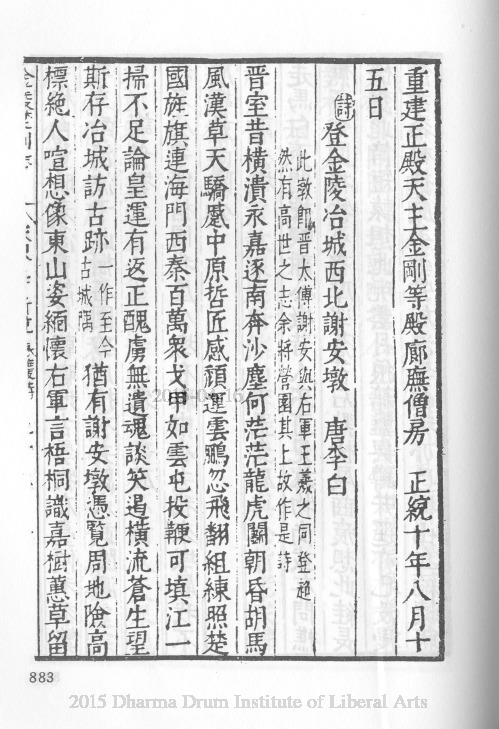 重建正殿天主金剛等殿廊廡僧房　正統十年八月十
五日
詩　登金陵冶城西北謝安墩　唐李白
此敦即晉太傅謝安與右軍王羲之同登超
然有高世之志余將營園其上故作是詩
晉室昔橫潰永嘉逐南奔沙塵何茫茫龍虎鬭朝昏胡馬
風漢草天驕蹙中原哲匠感頹運雲鵬忽飛翻組練照楚
國旌旗連海門西秦百萬衆戈甲如雲屯投鞭可填江一
掃不足論皇運有返正醜虜無遺魂談笑遏橫流蒼生望
斯存冶城訪古跡一作至今古城隅猶有謝安墩憑覽周地險高
標絶人喧想像東山姿緬懷右軍言梧桐識嘉樹蕙草留
883
2015 Dharma Drum Institute of Liberal Arts